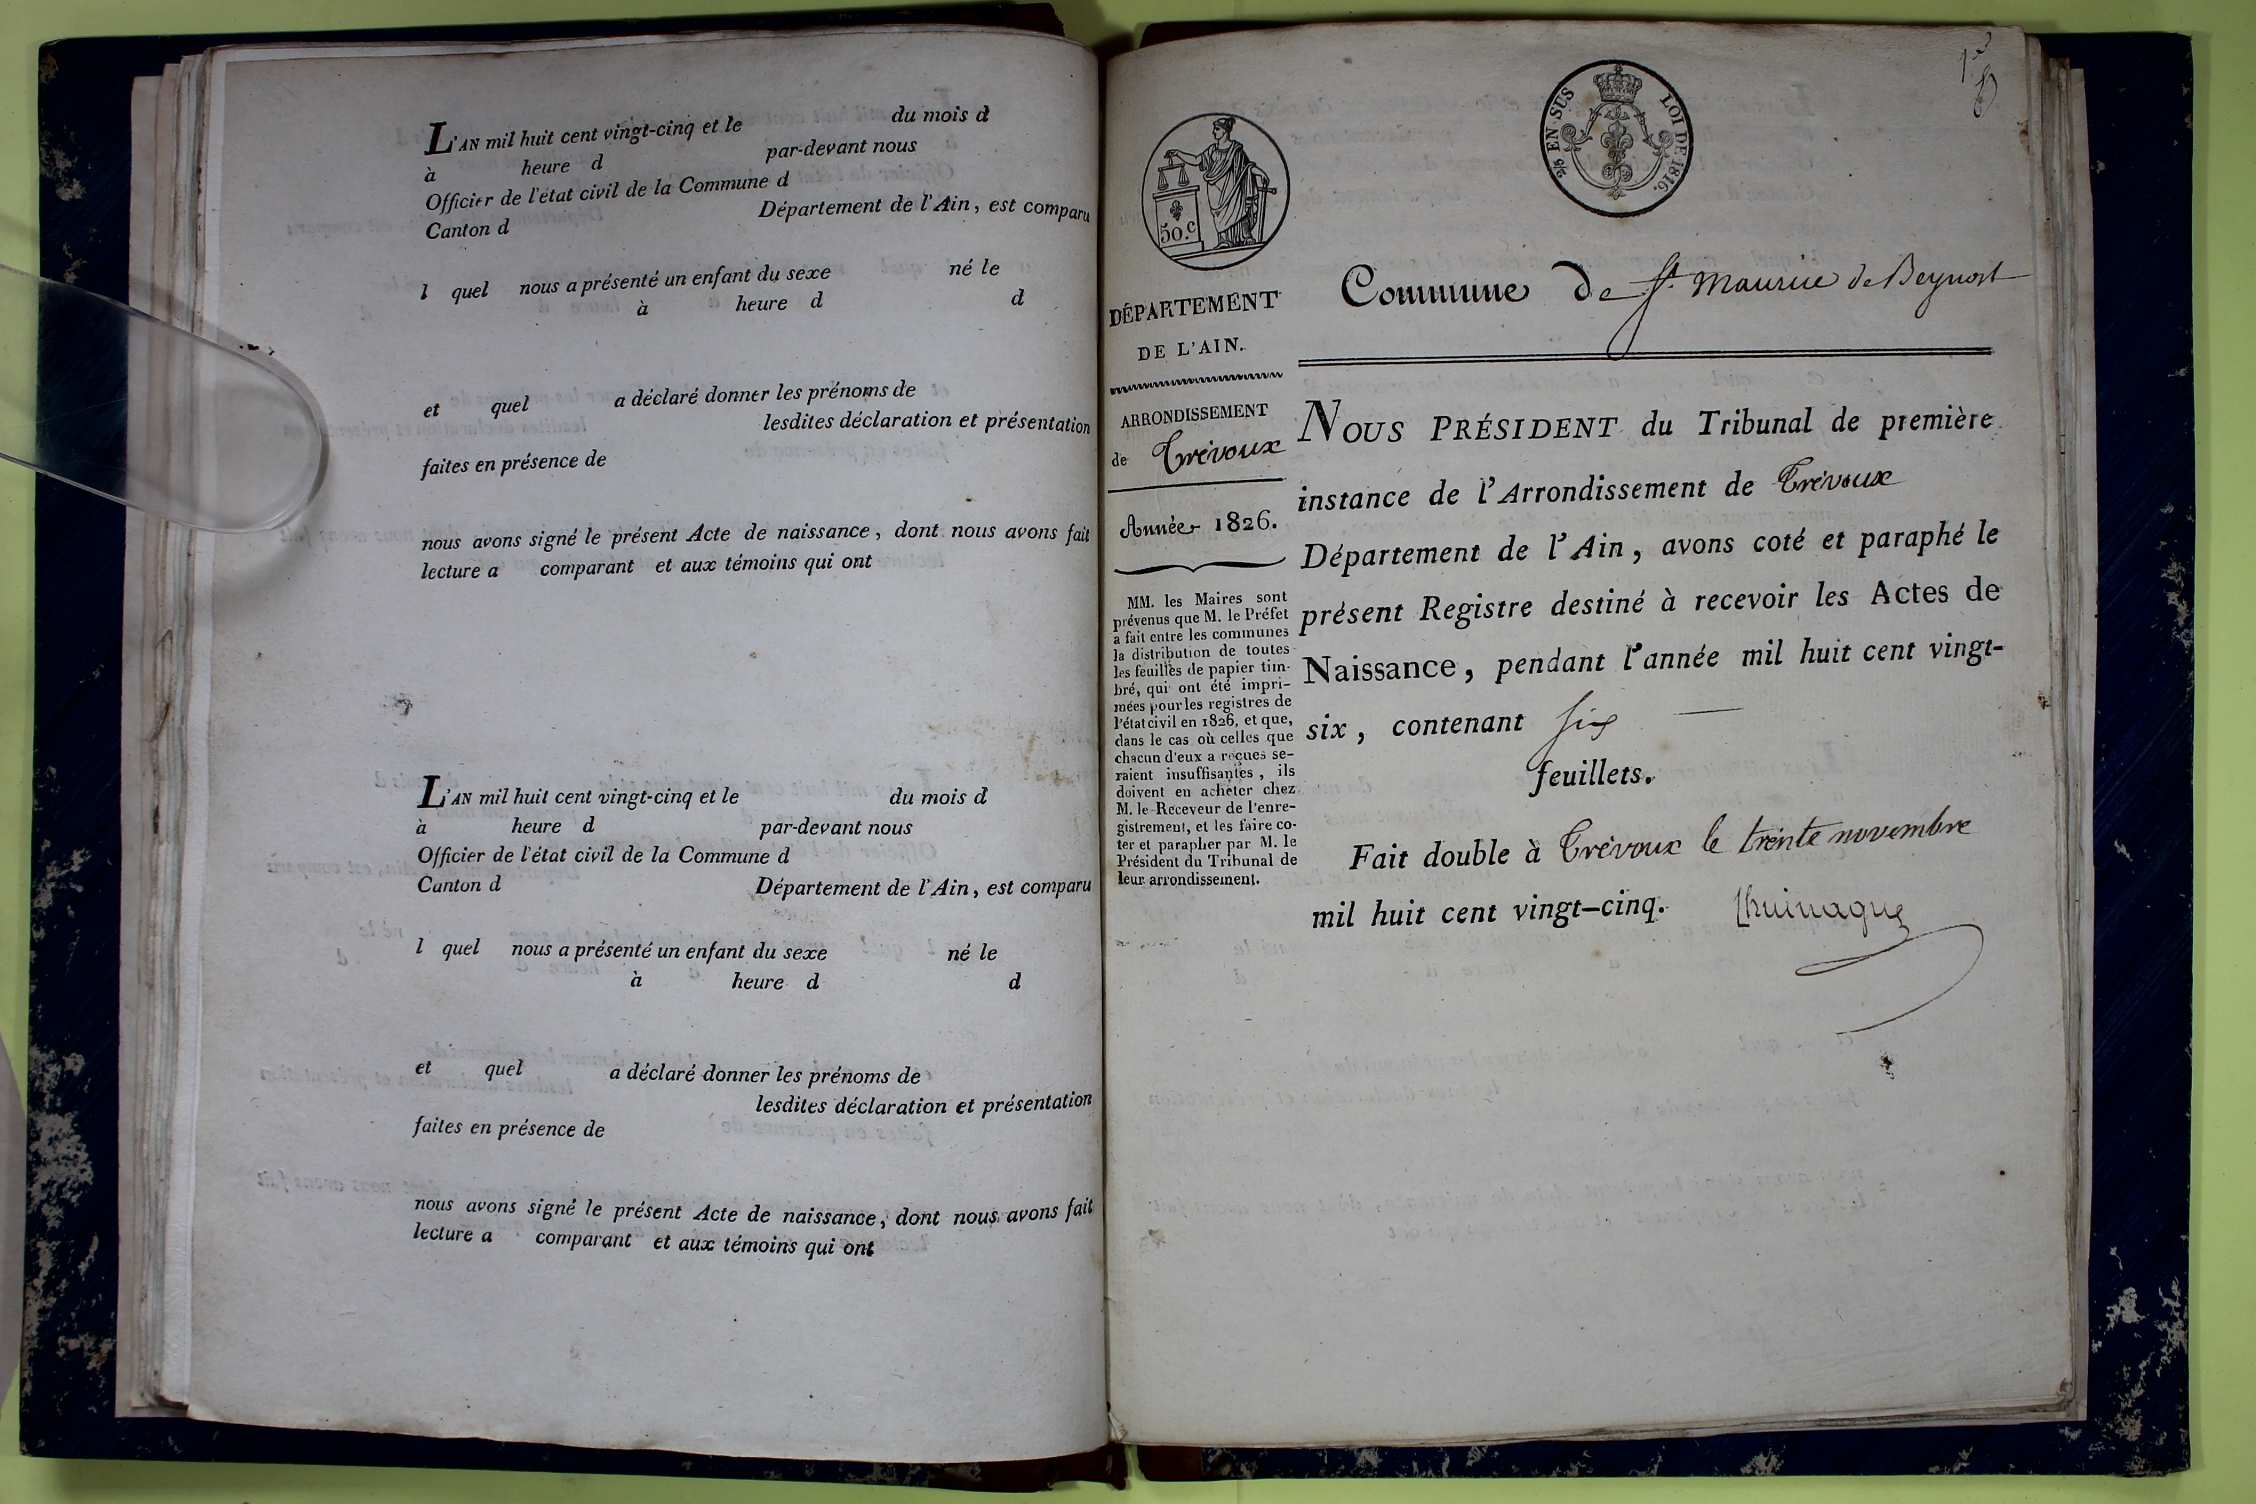 L'AN mil huit cent vingt-cinq et le du mois d
à heure d par-devant nous
Officier de l'état civil de la Commune d
Canton d Département de l'Ain, est comparu
l quel nous a présenté un enfant du sexe né le
à heure d d
et quel a déclaré donner les prénoms de
lesdites déclaration et présentation
faites en présence de
nous avons signé le présent Acte de naissance, dont nous avons fait
lecture a comparant et aux témoins qui ont
L'AN mil huit cent vingt-cinq et le du mois d
à heure d par-devant nous
Officier de l'état civil de la Commune d
Canton d Département de l'Ain, est comparu
l quel nous a présenté un enfant du sexe né le
à heure d d
et quel a déclaré donner les prénoms de
lesdites déclaration et présentation
faites en présence de
nous avons signé le présent Acte de naissance, dont nous avons fait
lecture a comparant et aux témoins qui ont
50.c
EN SUS LOI DE 1816.
DÉPARTEMENT
DE L'AIN.
ARRONDISSEMENT
de Trévoux
Année 1826.
MM. les Maires sont
prévenus que M. le Préfet
a fait entre les communes
la distribution de toutes
les feuilles de papier tim-
bré, qui ont été impri-
mées pour les registres de
l'état civil en 1826, et que,
dans le cas où celles que
chacun d'eux a reçues se-
raient insuffisantes, ils
doivent en acheter chez
M. le Receveur de l'enre-
gistrement, et les faire co-
ter et parapher par M. le
Président du Tribunal de
leur arrondissement.
Commune de St. Maurice de Beynost
NOUS PRÉSIDENT du Tribunal de première
instance de l'Arrondissement de Trévoux
Département de l'Ain, avons coté et paraphé le
présent Registre destiné à recevoir les Actes de
Naissance, pendant l'année mil huit cent vingt-
six, contenant six
feuillets.
Fait double à Trévoux le trente novembre
mil huit cent vingt-cinq.